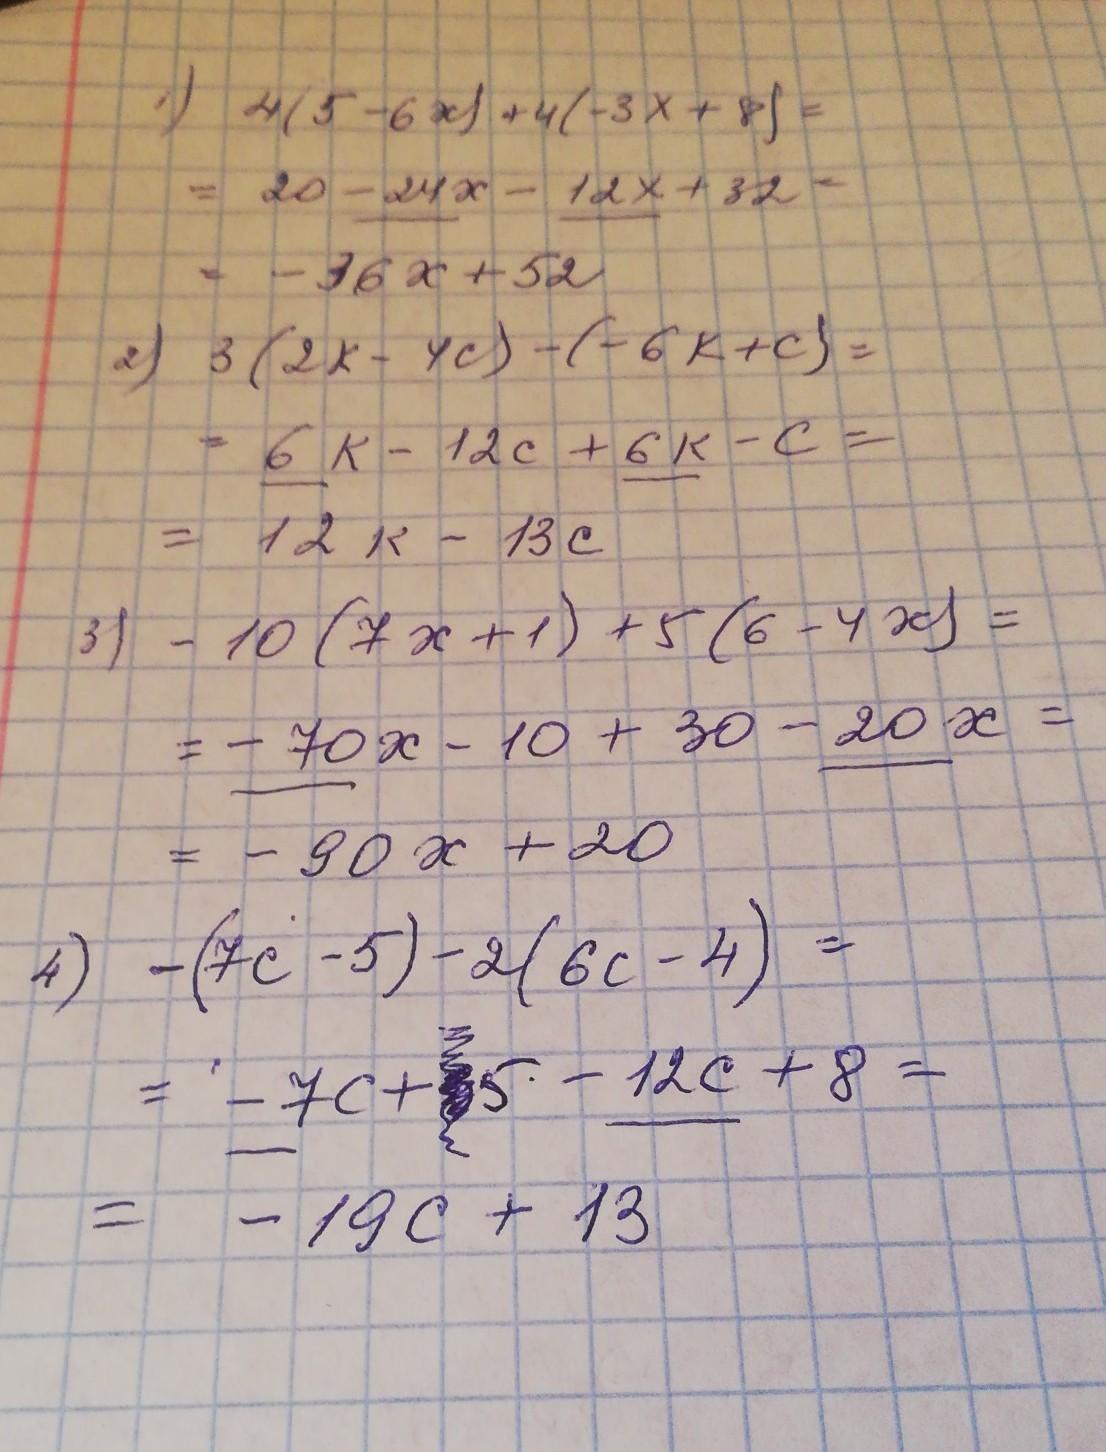 1) 4(5-6x)+4(-3x+8)=
= 20-24x-12x+32=
= -36x+52
2) 3(2к-4с)-(-6к+с)=
= 6к-12с+6к-с=
= 12к-13с
3) -10(7x+1)+5(6-4x)=
= -70x-10+30-20x=
= -90x+20
4) -(7с-5)-2(6с-4)=
= -7с+5-12с+8=
= -19с+13